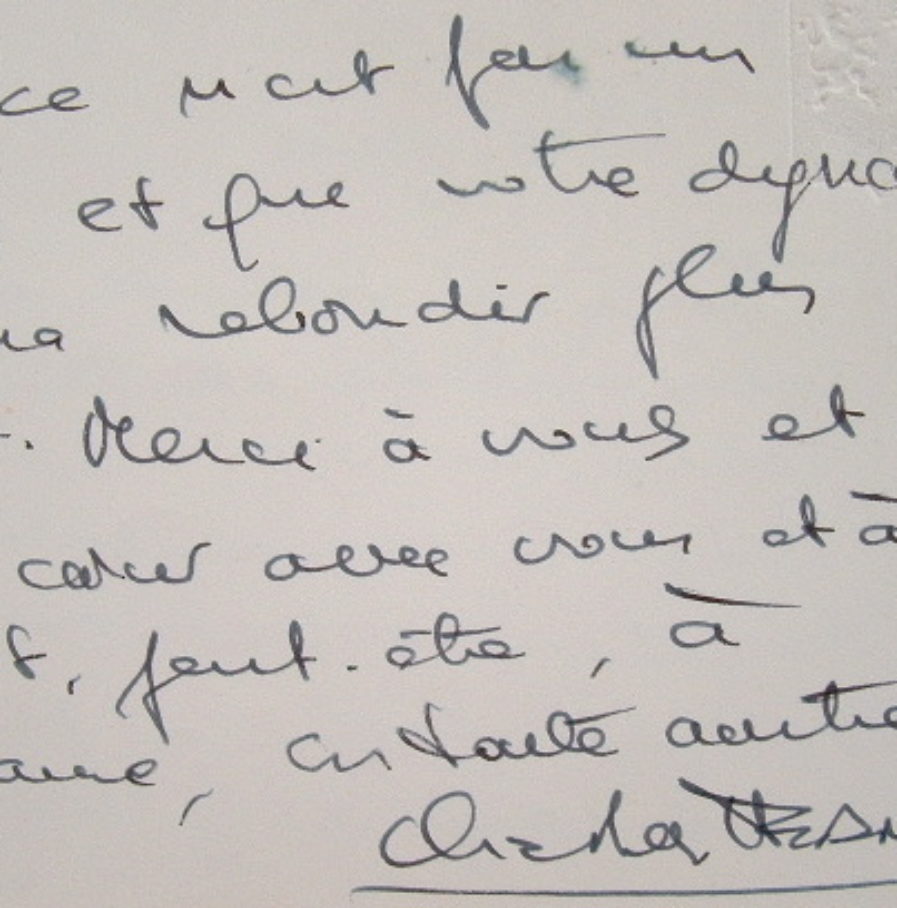 ce n'ait par un
et que votre dyna
ra rebondir plus
. Merci à vous et
cœur avec vous et à
t, peut-être, à
en toute autre
Charles TRÉN